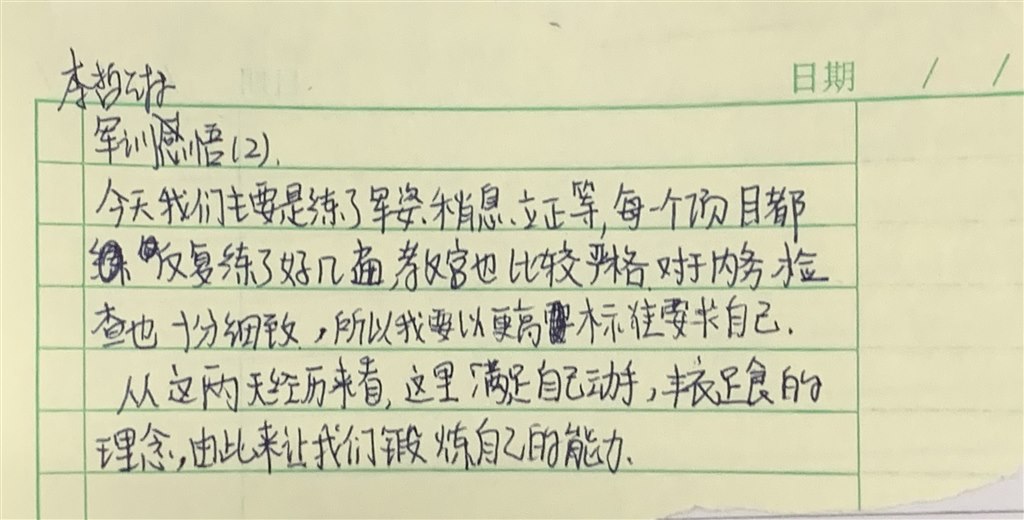 日期 / /
李哲
军训感悟(2).
今天我们主要是练了军姿、稍息、立正等,每一个项目都
反复练了好几遍,教官也比较严格.对于内务检
查也十分细致,所以我要以更高标准要求自己.
从这两天经历来看,这里满足自己动手,丰衣足食的
理念,由此来让我们锻炼自己的能力.